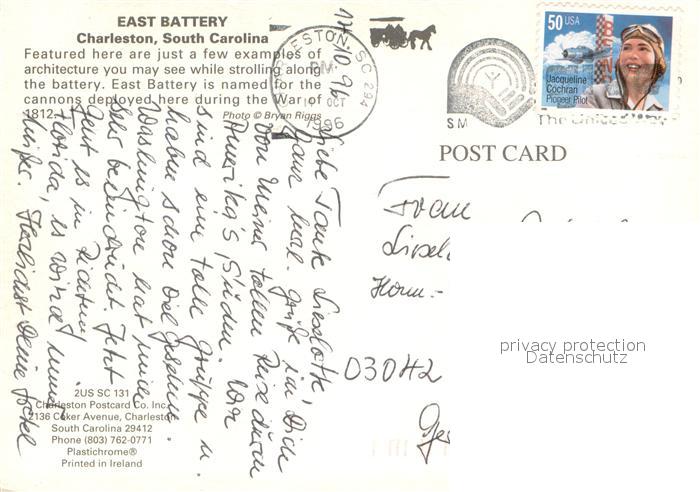 EAST BATTERY
Charleston, South Carolina
Featured here are just a few examples of
architecture you may see while strolling along
the battery. East Battery is named for the
cannons deployed here during the War of
1812.
Photo © Bryan Riggs
17.10.96
Liebe Tante Liselotte,
ganz herzl. Grüße an Dich
von meiner tollen Reise durch
Amerika's Süden. Wir
sind eine tolle Gruppe u.
haben schon viel gesehen.
Washington hat mich
sehr beeindruckt. Jetzt
geht es in Richtung
Florida, es wird immer
Herzlichst Deine
2US SC 131
Charleston Postcard Co. Inc.
2136 Coker Avenue, Charleston
South Carolina 29412
Phone (803) 762-0771
Plastichrome®
Printed in Ireland
CHARLESTON SC 294
PM
OCT
1996
SM
The United Way
50 USA
Jacqueline
Cochran
Pioneer Pilot
POST CARD
Frau
03042
Ger
privacy protection
Datenschutz